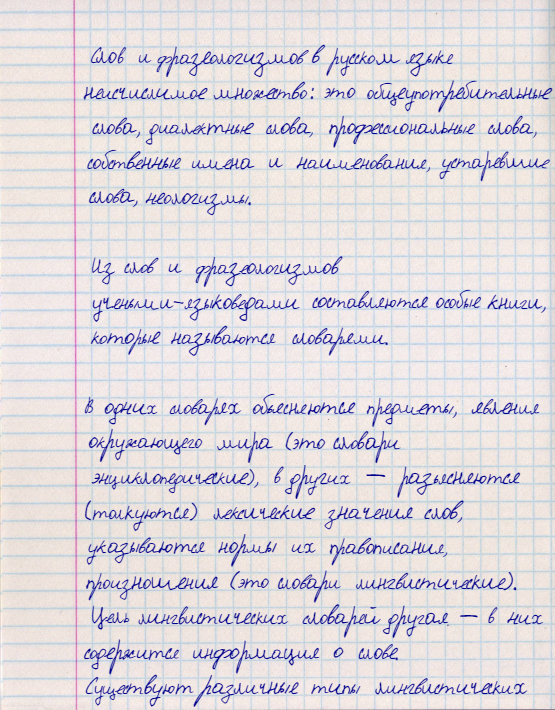 Слов и фразеологизмов в русском языке
неисчислимое множество: это общеупотребительные
слова, диалектные слова, профессиональные слова,
собственные имена и наименования, устаревшие
слова, неологизмы.
Из слов и фразеологизмов
учеными-языковедами составляются особые книги,
которые называются словарями.
В одних словарях объясняются предметы, явления
окружающего мира (это словари
энциклопедические), в других — разъясняются
(толкуются) лексические значения слов,
указываются нормы их правописания,
произношения (это словари лингвистические).
Цель лингвистических словарей другая — в них
содержится информация о слове.
Существуют различные типы лингвистических